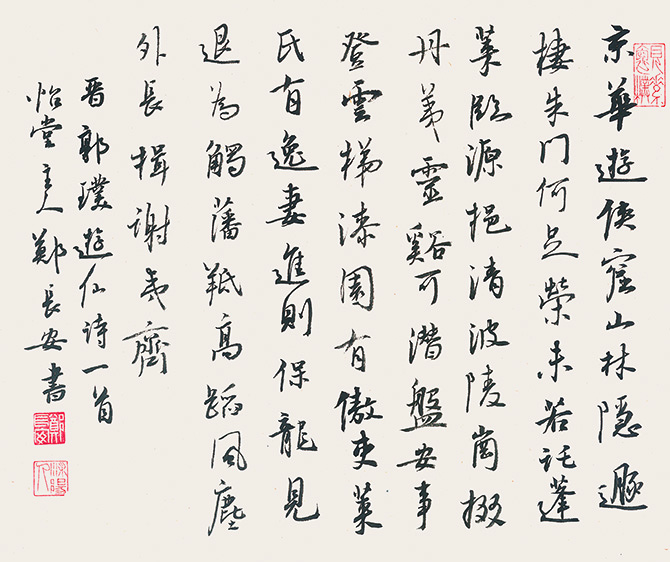 京華遊俠窟山林隱遯
棲朱門何足榮未若託蓬
萊臨源挹清波陵崗掇
丹荑靈谿可潛盤安事
登雲梯漆園有傲吏萊
氏有逸妻進則保龍見
退為觸藩羝高蹈風塵
外長揖謝夷齊
晉郭璞遊仙诗一首
怡堂主人鄭長安書